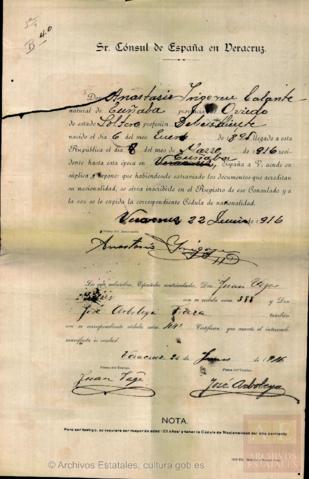 Sr. Cónsul de España en Veracruz.
Don Anastasio
natural de provincia Oviedo
de estado Soltero profesión Dependiente
nacido el día 6 del mes Enero de 89 llegado a esta
República el día 8 del mes de Marzo de 916 resi-
dente hasta esta época en España a V. acude en
súplica y expone: que habiéndose extraviado los documentos que acreditan
su nacionalidad, se sirva inscribirle en el Registro de ese Consulado y a
la vez se le expida la correspondiente Cédula de nacionalidad.
Veracruz 22 Junio de 1916
Firma del Interesado.
Anastasio
Los que subscriben, Españoles matriculados, Don Juan
con su cédula núm. 388 y Don
José Arboleya también
con su correspondiente cédula núm. Certifican que cuanto el interesado
manifiesta es verdad.
Veracruz de de 1916
Firma del Testigo. Firma del Testigo.
Juan José Arboleya
NOTA.
Para ser testigo, se requiere ser mayor de edad (23 años) y tener la Cédula de Nacionalidad del año corriente
ARCHIVOS
ESTATALES
© Archivos Estatales, cultura.gob.es